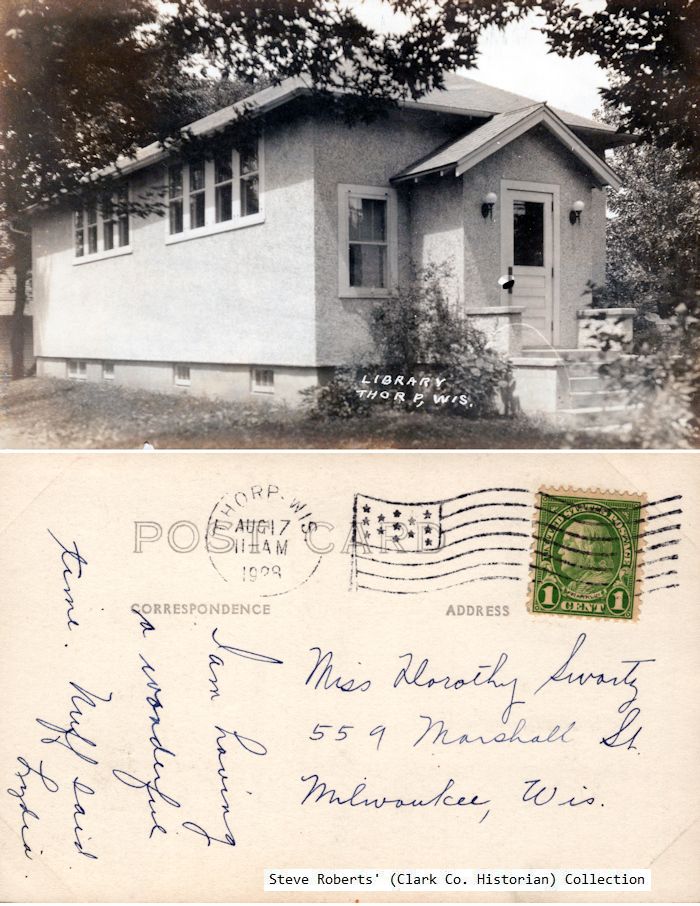 LIBRARY
THORP, WIS.
POST CARD
THORP-WIS
AUG 17
11 AM
UNITED STATES POSTAGE
FRANKLIN
1 CENT 1
CORRESPONDENCE
ADDRESS
I am having
a wonderful
time. Nuff said
Lydia.
Miss Dorothy Swartz
559 Marshall St.
Milwaukee, Wis.
Steve Roberts' (Clark Co. Historian) Collection